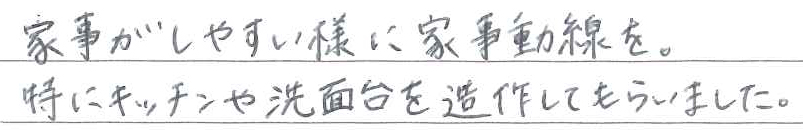 家事がしやすい様に家事動線を。
特にキッチンや洗面台を造作してもらいました。